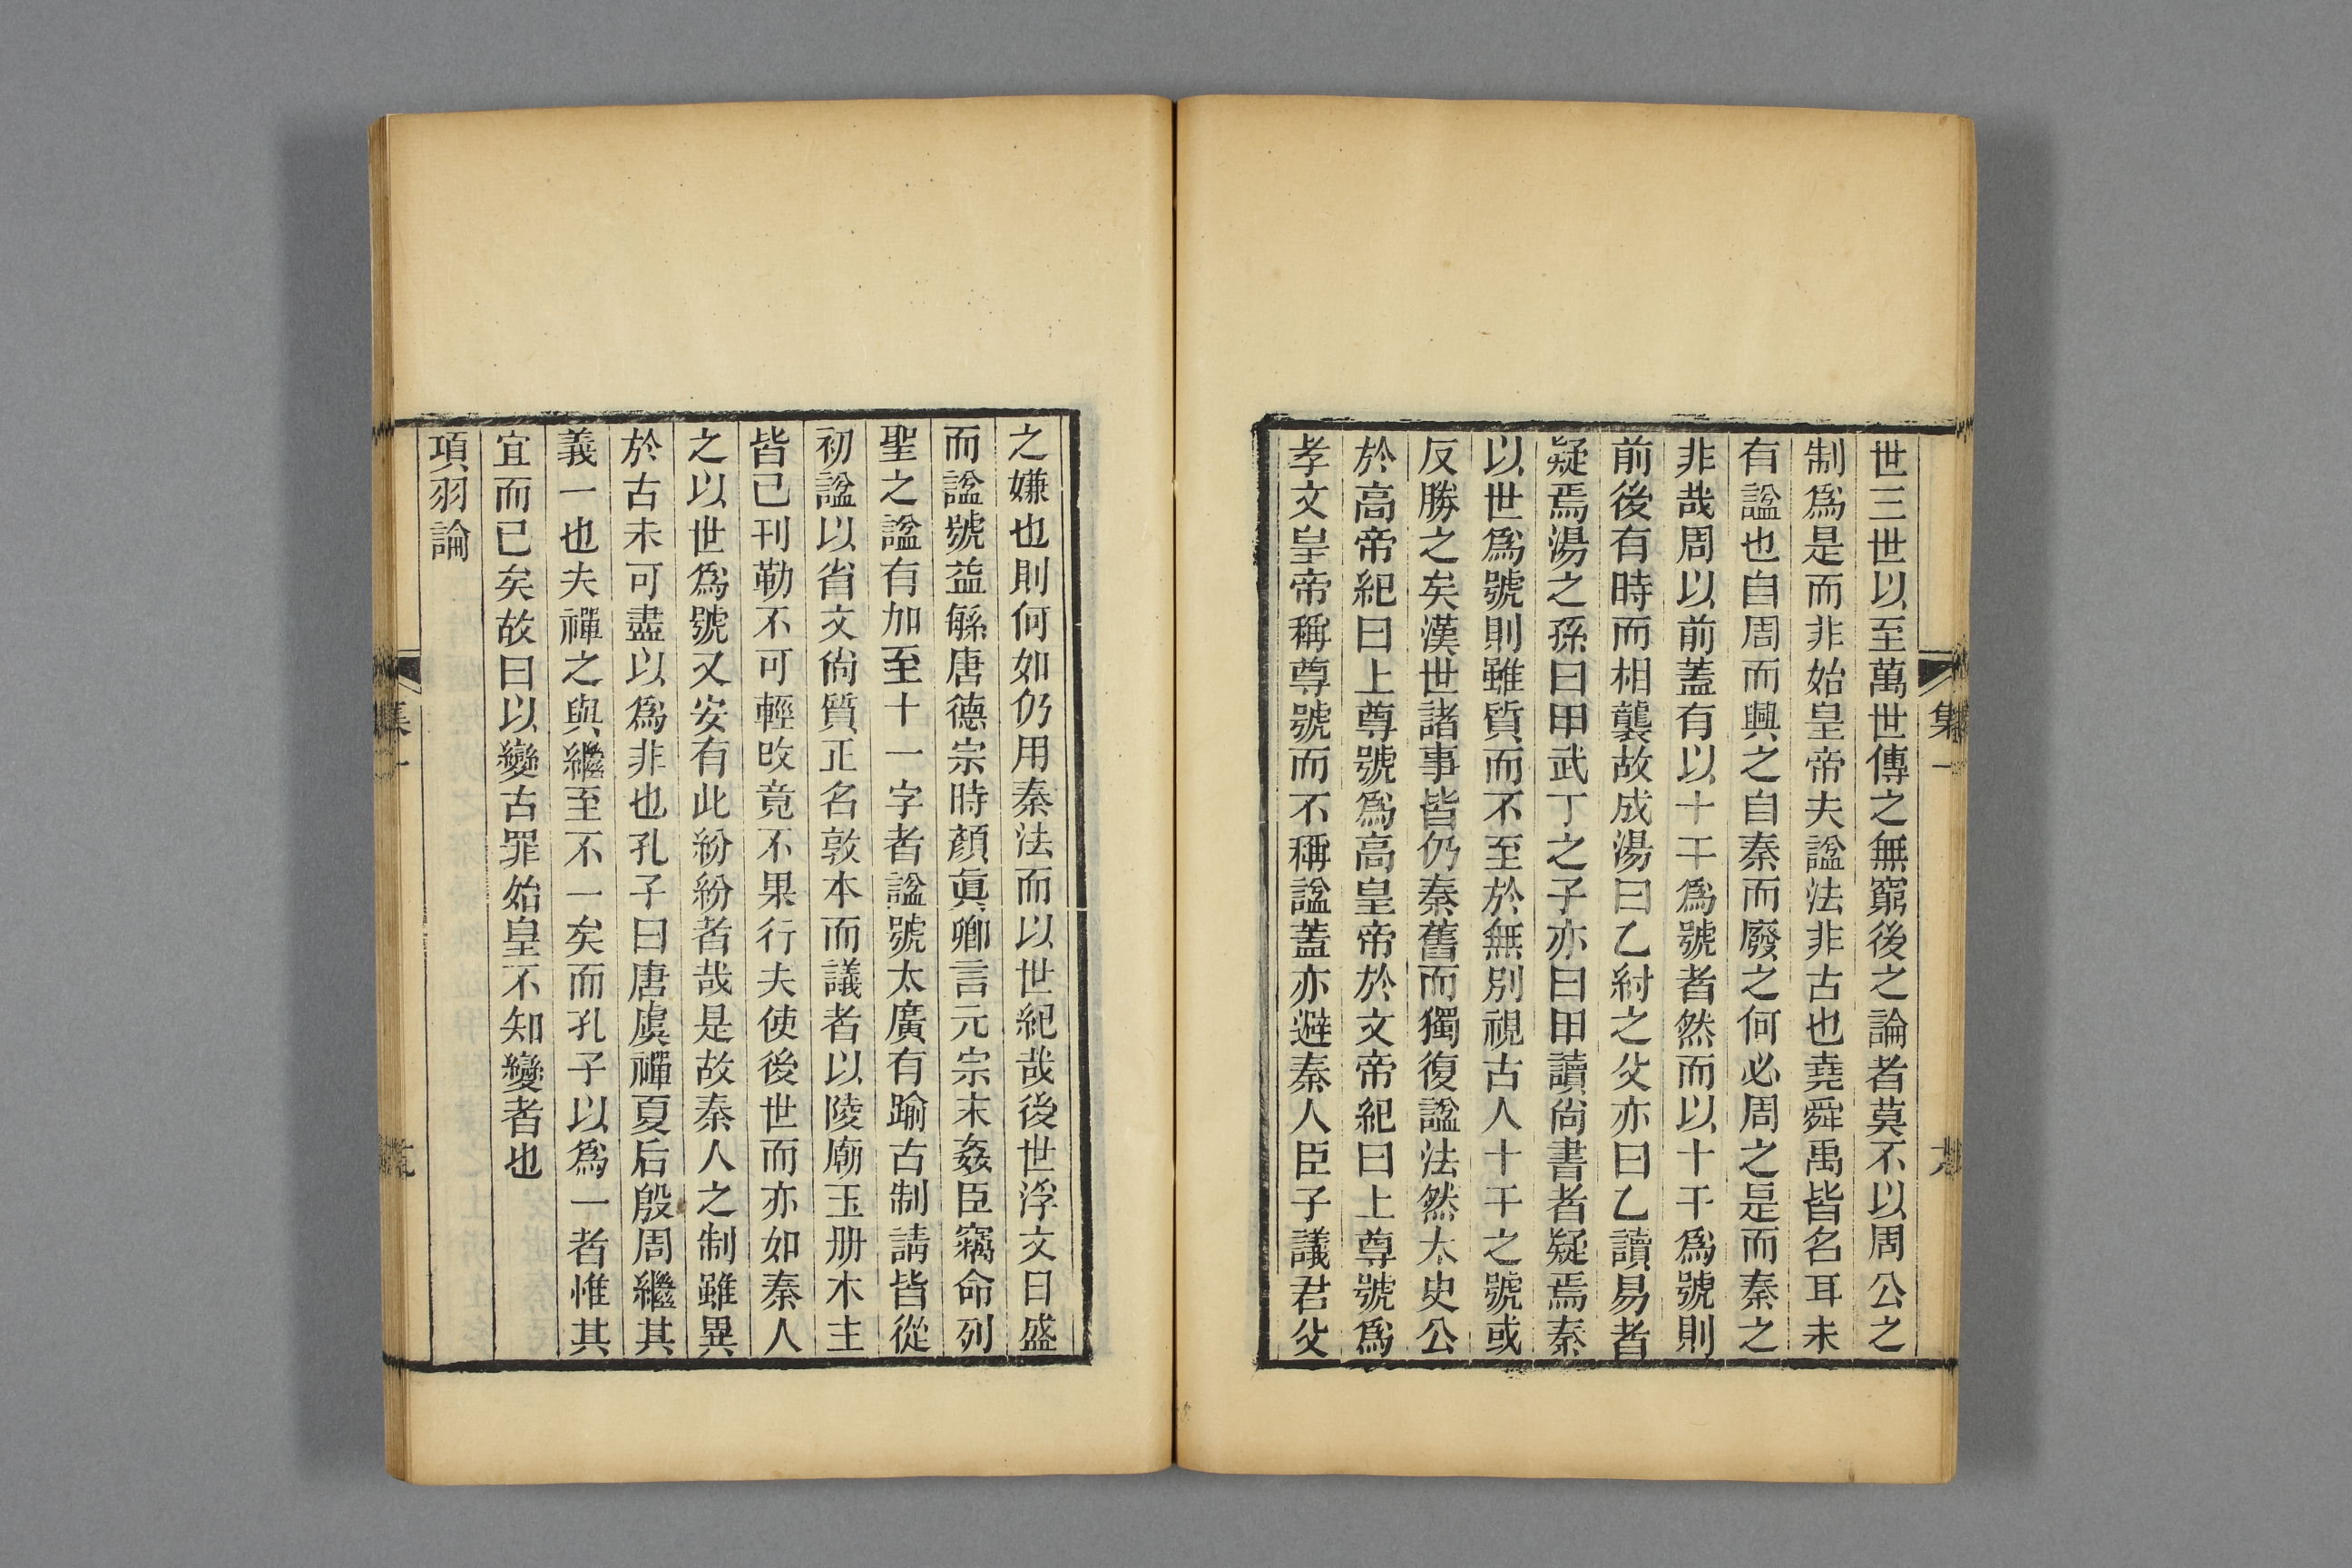 世三世以至萬世傳之無窮後之論者莫不以周公之
制爲是而非始皇帝夫諡法非古也堯舜禹皆名耳未
有諡也自周而興之自秦而廢之何必周之是而秦之
非哉周以前蓋有以十干爲號者然而以十干爲號則
前後有時而相襲故成湯曰乙紂之父亦曰乙讀易者
疑焉湯之孫曰甲武丁之子亦曰甲讀尙書者疑焉秦
以世爲號則雖質而不至於無別視古人十干之號或
反勝之矣漢世諸事皆仍秦舊而獨復諡法然太史公
於高帝紀曰上尊號爲高皇帝於文帝紀曰上尊號爲
孝文皇帝稱尊號而不稱諡蓋亦避秦人臣子議君父
之嫌也則何如仍用秦法而以世紀哉後世浮文日盛
而諡號益緐唐德宗時顏眞卿言元宗末姦臣竊命列
聖之諡有加至十一字者諡號太廣有踰古制請皆從
初諡以省文尙質正名敦本而議者以陵廟玉册木主
皆已刊勒不可輕改竟不果行夫使後世而亦如秦人
之以世爲號又安有此紛紛者哉是故秦人之制雖異
於古未可盡以爲非也孔子曰唐虞禪夏后殷周繼其
義一也夫禪之與繼至不一矣而孔子以爲一者惟其
宜而已矣故曰以變古罪始皇不知變者也
項羽論
集一